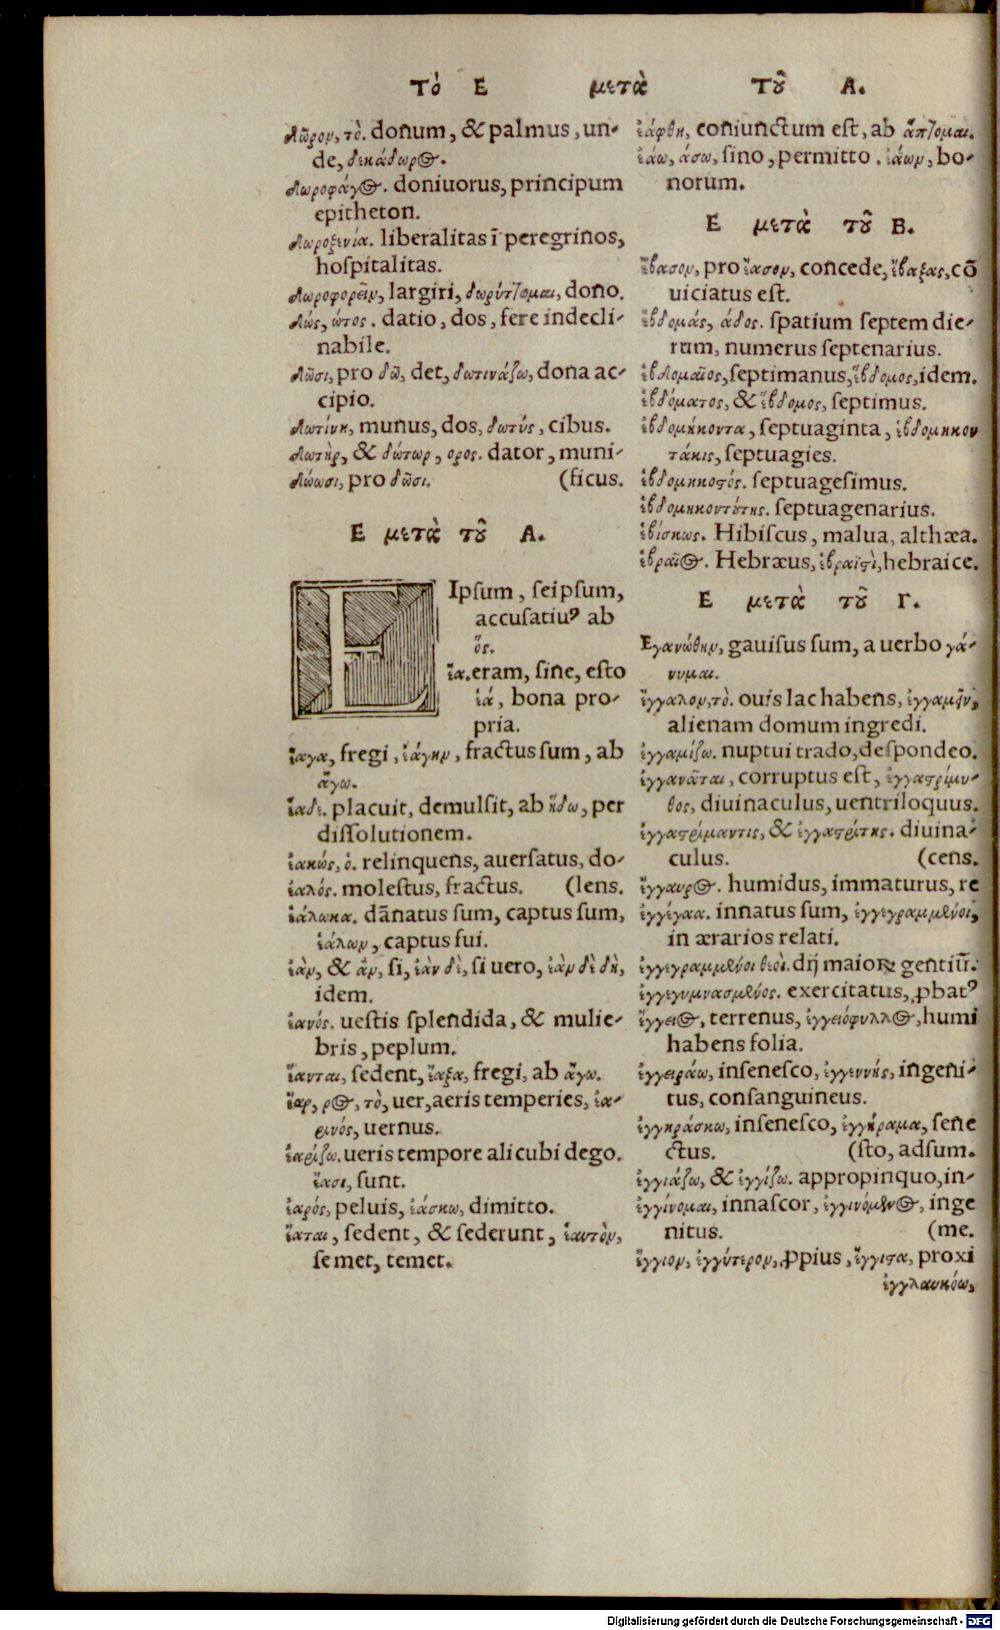 Τὸ Ε μετὰ τοῦ Α.
δῶρον, τὸ. donum, & palmus, un-
de, δεκάδωρος.
δωροφάγος. doniuorus, principum
epitheton.
δωροξενία. liberalitas ī peregrinos,
hospitalitas.
δωροφορεῖν, largiri, δωρύττομαι, dono.
δώς, ώτος. datio, dos, fere indecli-
nabile.
δῶσι, pro δῶ, det, δωτινάζω, dona ac-
cipio.
δωτίνη, munus, dos, δωτύς, cibus.
δωτὴρ, & δώτωρ, ορος. dator, muni-
δώωσι, pro δῶσι. (ficus.
Ε μετὰ τοῦ Α.
E Ipsum, seipsum,
accusatiuꝰ ab
ὅς.
ἔα. eram, sine, esto
ἐά, bona pro-
pria.
ἔαγα, fregi, ἐάγην, fractus sum, ab
ἄγω.
ἔαδε. placuit, demulsit, ab ἥδω, per
dissolutionem.
ἐακώς, ὁ. relinquens, auersatus, do-
ἐαλός. molestus, fractus. (lens.
ἑάλωκα. dānatus sum, captus sum,
ἑάλων, captus fui.
ἐὰν, & ἂν, si, ἐὰν δὲ, si uero, ἐὰν δὲ δὴ,
idem.
ἑανός. uestis splendida, & mulie-
bris, peplum.
ἕανται, sedent, ἔαξα, fregi, ab ἄγω.
ἔαρ, ρος, τὸ, uer, aeris temperies, ἐα-
ρινός, uernus.
ἐαρίζω. ueris tempore alicubi dego.
ἔασι, sunt.
ἐαρός, peluis, ἐάσκω, dimitto.
ἕαται, sedent, & sederunt, ἑαυτὸν,
semet, temet.
ἑάφθη, coniunctum est, ab ἅπτομαι.
ἐάω, άσω, sino, permitto. ἐάων, bo-
norum.
Ε μετὰ τοῦ Β.
ἔβασον, pro ἔασον, concede, ἔβαξας, cō
uiciatus est.
ἑβδομάς, άδος. spatium septem die-
rum, numerus septenarius.
ἑβδομαῖος, septimanus, ἕβδομος, idem.
ἑβδόματος, & ἕβδομος, septimus.
ἑβδομήκοντα, septuaginta, ἑβδομηκον
τάκις, septuagies.
ἑβδομηκοστός. septuagesimus.
ἑβδομηκοντούτης. septuagenarius.
ἐβίσκως. Hibiscus, malua, althæa.
ἑβραῖος. Hebræus, ἑβραϊστὶ, hebraice.
Ε μετὰ τοῦ Γ.
Εγανώθην, gauisus sum, a uerbo γά-
νυμαι.
ἔγγαλον, τὸ. ouis lac habens, ἐγγαμεῖν,
alienam domum ingredi.
ἐγγαμίζω. nuptui trado, despondeo.
ἐγγανᾶται, corruptus est, ἐγγαστρίμυ-
θος, diuinaculus, uentriloquus.
ἐγγαστρίμαντις, & ἐγγαστρίτης. diuina-
culus. (cens.
ἔγγαυρος. humidus, immaturus, re
ἐγγέγαα. innatus sum, ἐγγεγραμμένοι,
in ærarios relati.
ἐγγεγραμμένοι θεοὶ. dij maioꝝ gentiū.
ἐγγεγυμνασμένος. exercitatus, ꝓbatꝰ
ἔγγειος, terrenus, ἐγγειόφυλλος, humi
habens folia.
ἐγγειράω, insenesco, ἐγγεννής, ingeni-
tus, consanguineus.
ἐγγηράσκω, insenesco, ἐγγήραμα, sene
ctus. (sto, adsum.
ἐγγιάζω, & ἐγγίζω. appropinquo, in-
ἐγγίνομαι, innascor, ἐγγινόμενος, inge
nitus. (me.
ἔγγιον, ἐγγύτερον, ꝓpius, ἔγγιστα, proxi
ἐγγλαυκόω,
Digitalisierung gefördert durch die Deutsche Forschungsgemeinschaft - DFG